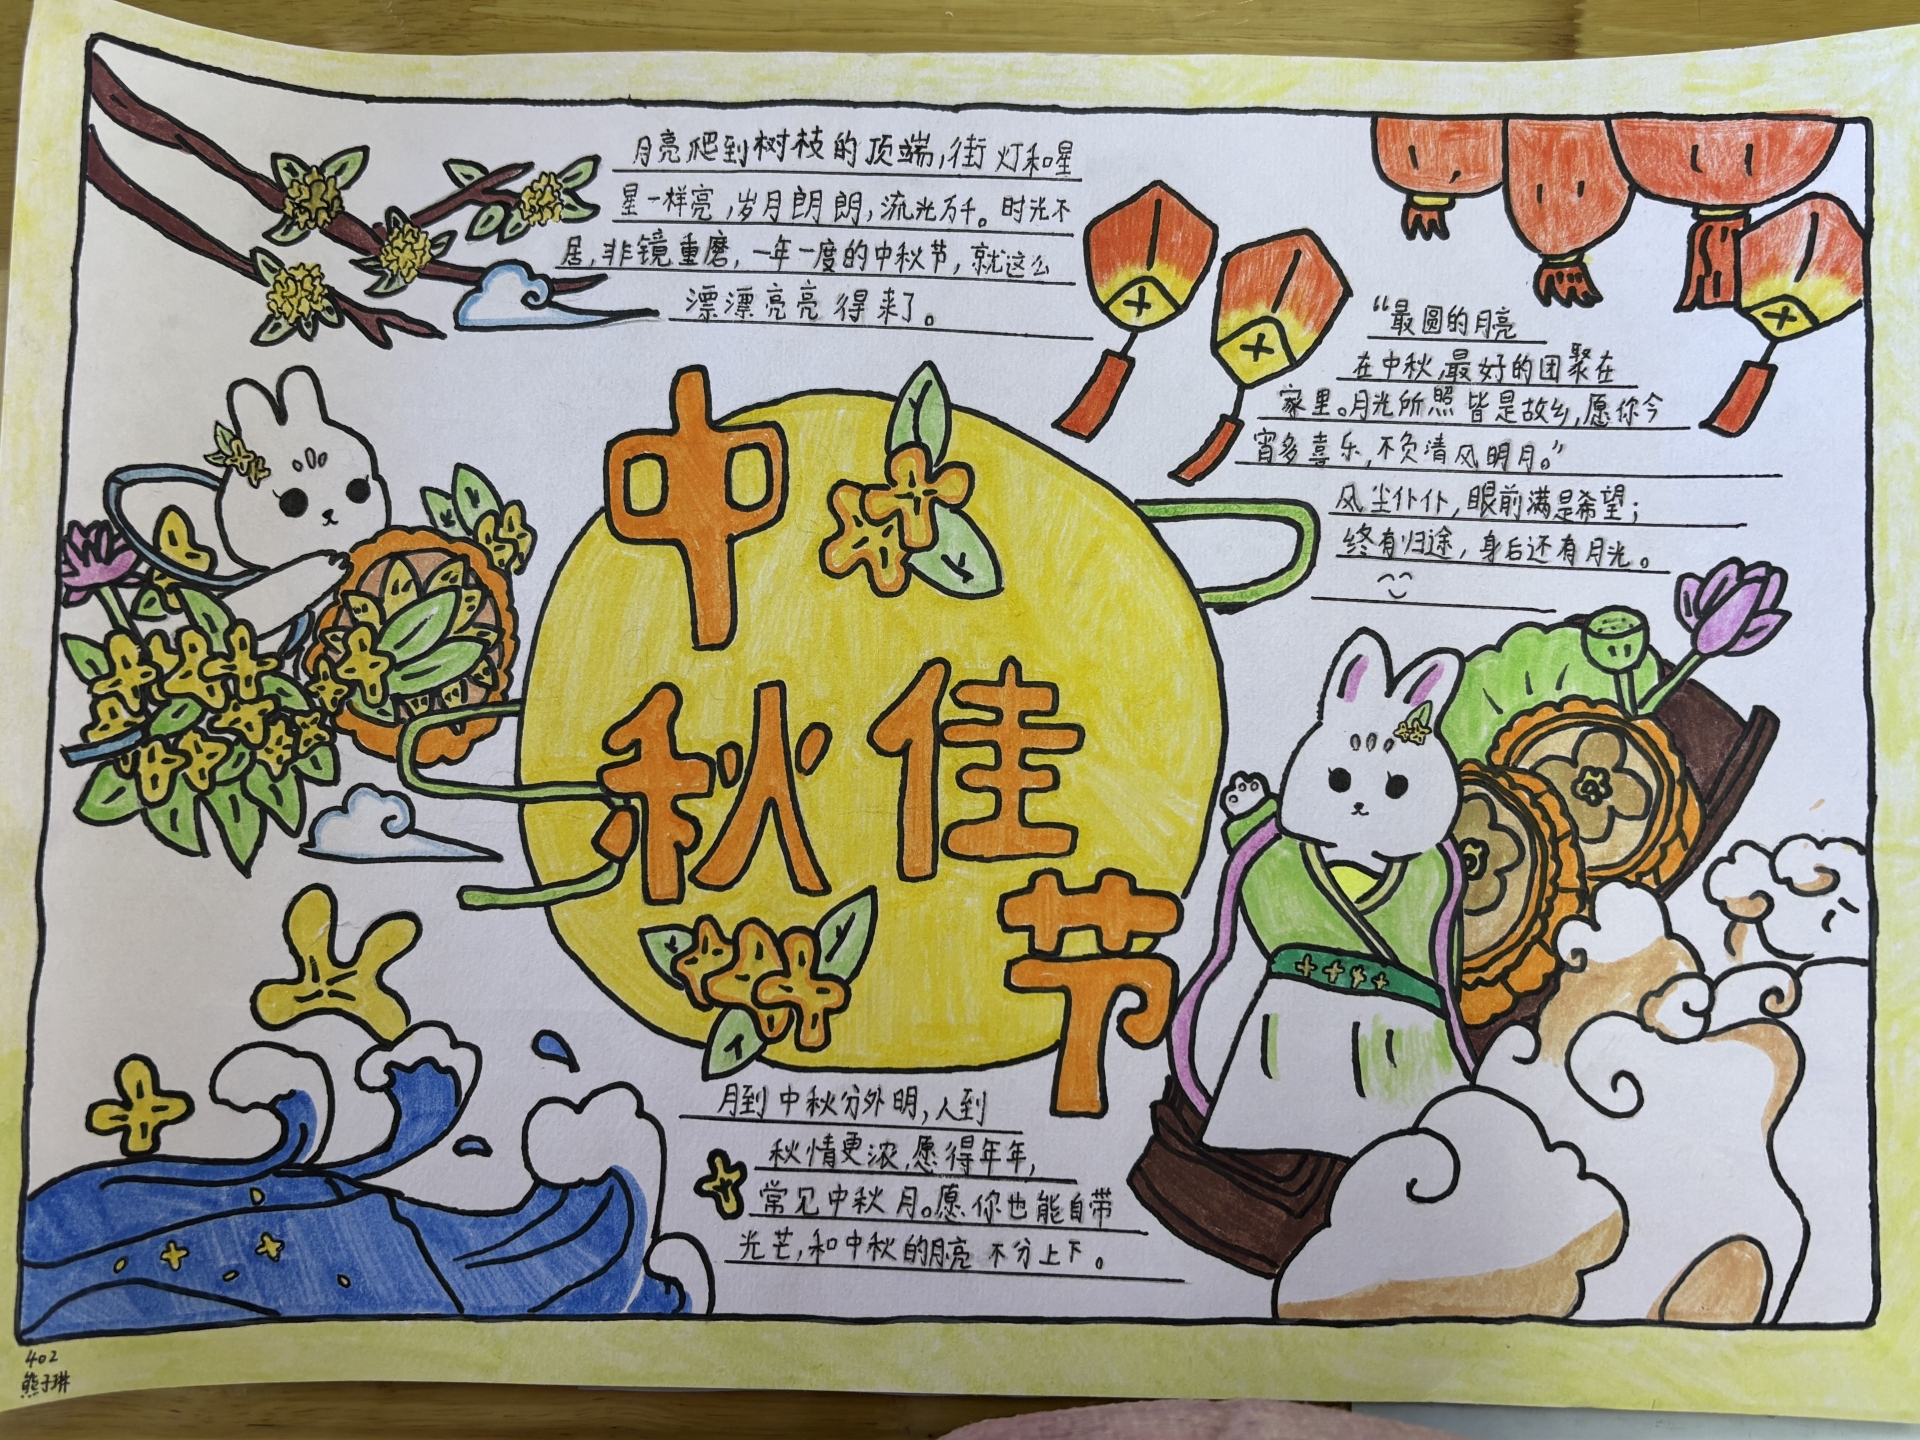 月亮爬到树枝的顶端,街灯和星
星一样亮,岁月朗朗,流光万千。时光不
居,非镜重磨,一年一度的中秋节,就这么
漂漂亮亮得来了。
“最圆的月亮
在中秋,最好的团聚在
家里。月光所照皆是故乡,愿你今
宵多喜乐,不负清风明月。”
风尘仆仆,眼前满是希望;
终有归途,身后还有月光。
中
秋佳
节
月到中秋分外明,人到
秋情更浓,愿得年年,
常见中秋月。愿你也能自带
光芒,和中秋的月亮不分上下。
402
熊子琳